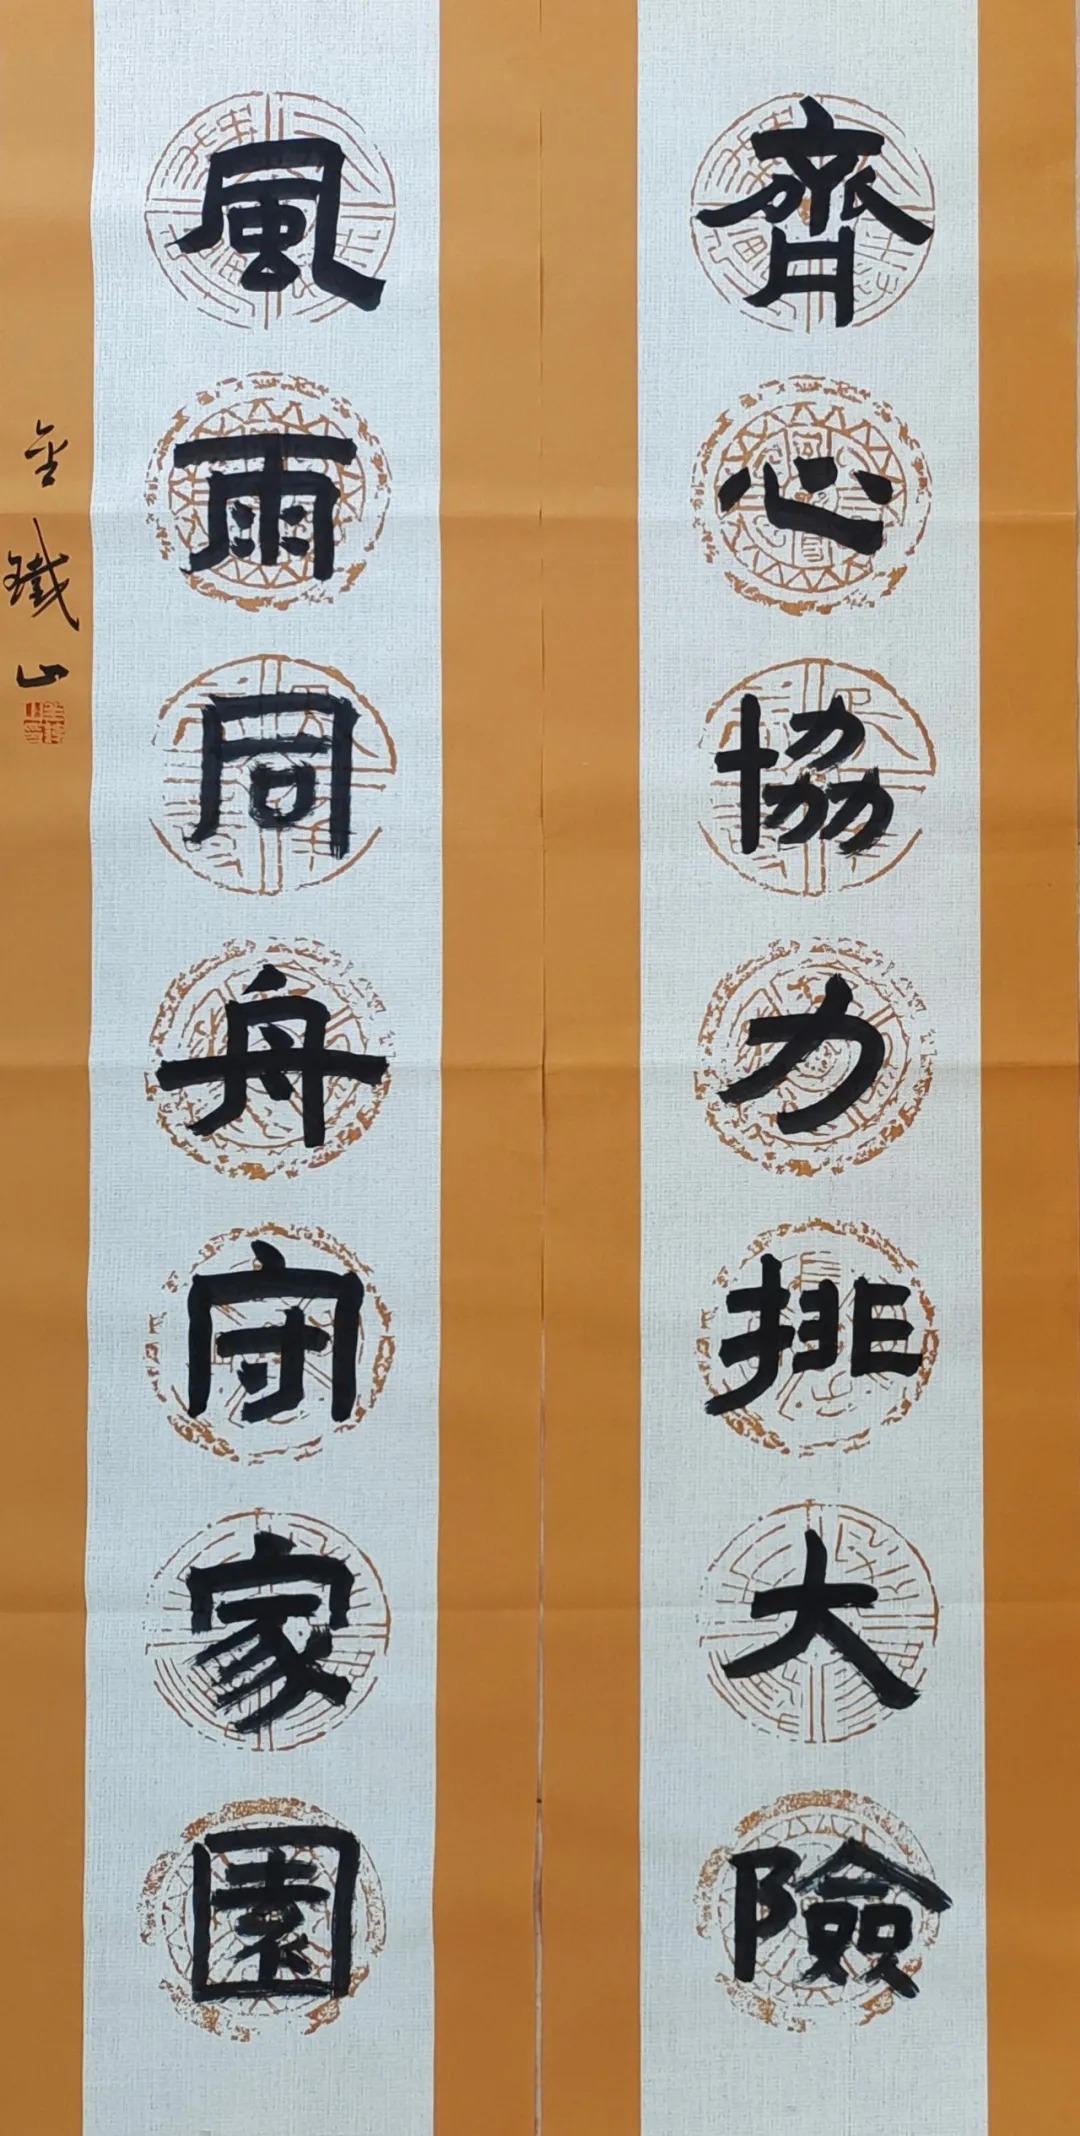 齊心協力排大險
風雨同舟守家園
金鐵山